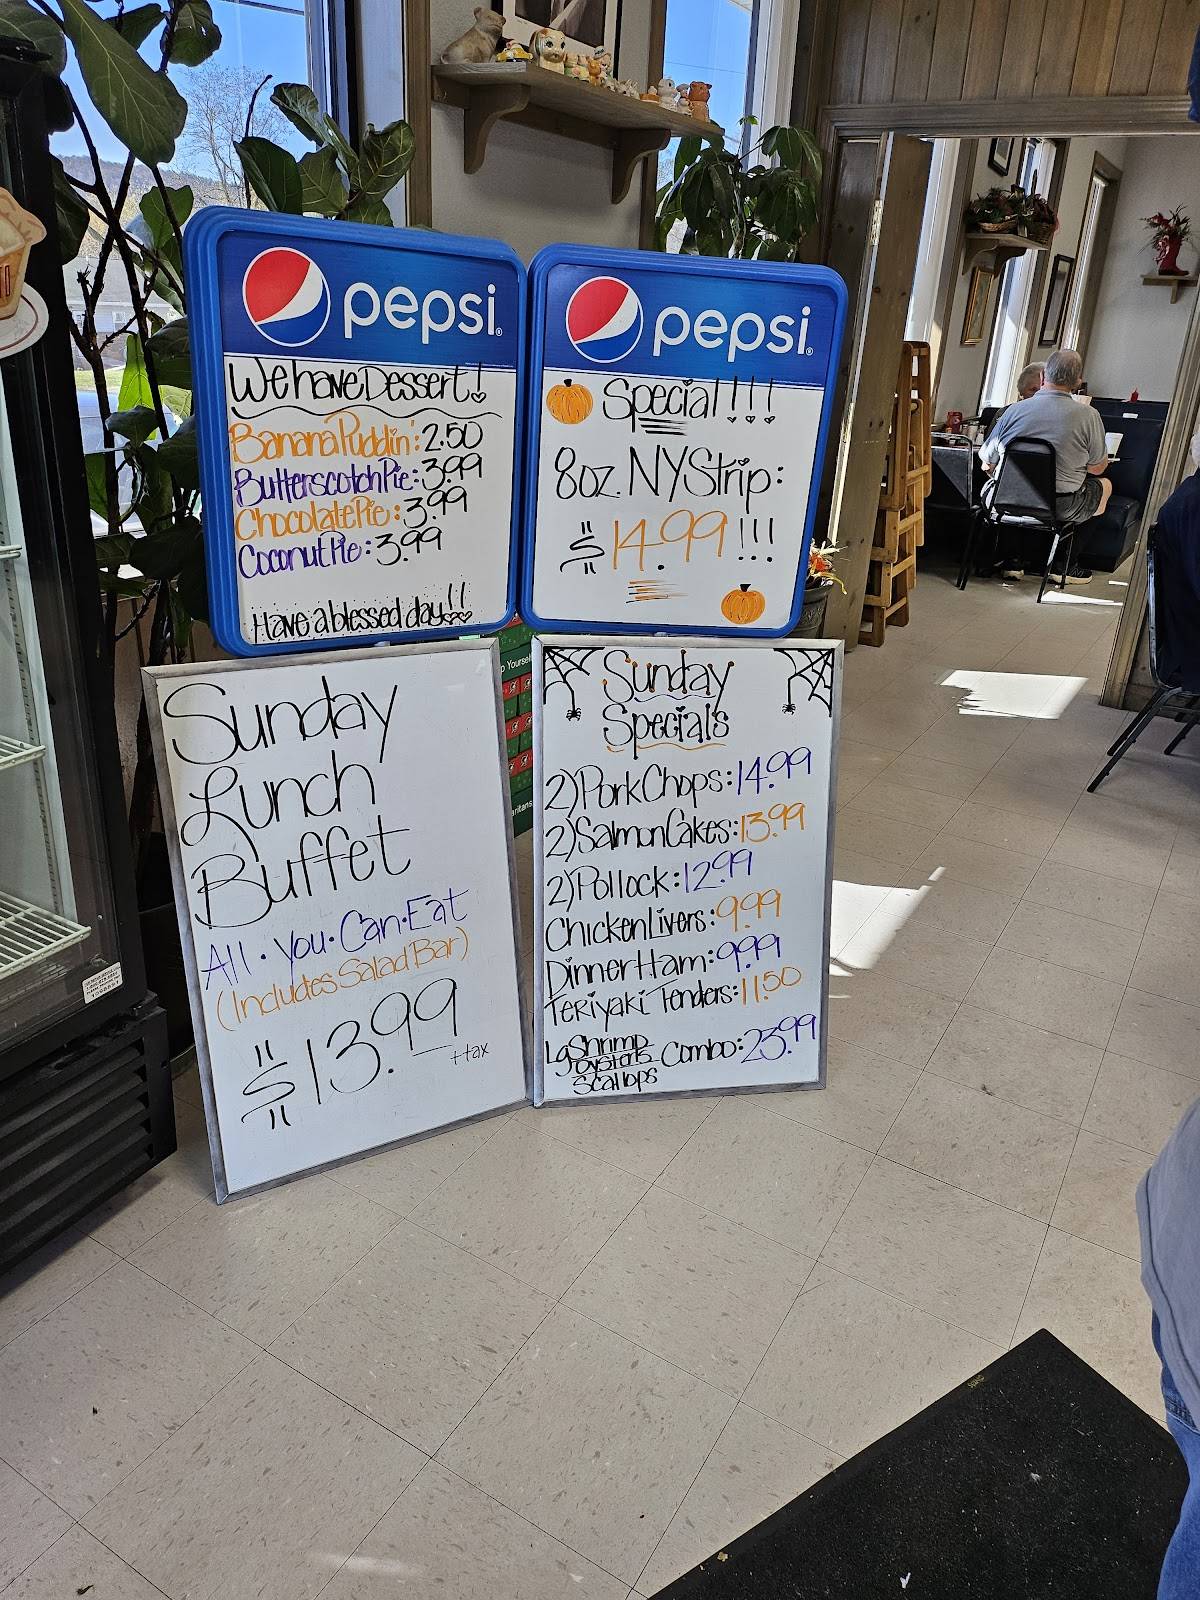 pepsi
We have Dessert!
Banana Puddin': 2.50
Butterscotch Pie: 3.99
Chocolate Pie: 3.99
Coconut Pie: 3.99
Have a blessed day!!
pepsi
Special!!!
8oz. NY Strip:
$14.99!!!
Sunday
Lunch
Buffet
All·You·Can·Eat
(Includes Salad Bar)
$13.99
+tax
Sunday
Specials
2) Pork Chops: 14.99
2) Salmon Cakes: 13.99
2) Pollock: 12.99
Chicken Livers: 9.99
Dinner Ham: 9.99
Teriyaki Tenders: 11.50
Lg Shrimp
Oysters Combo: 23.99
Scallops